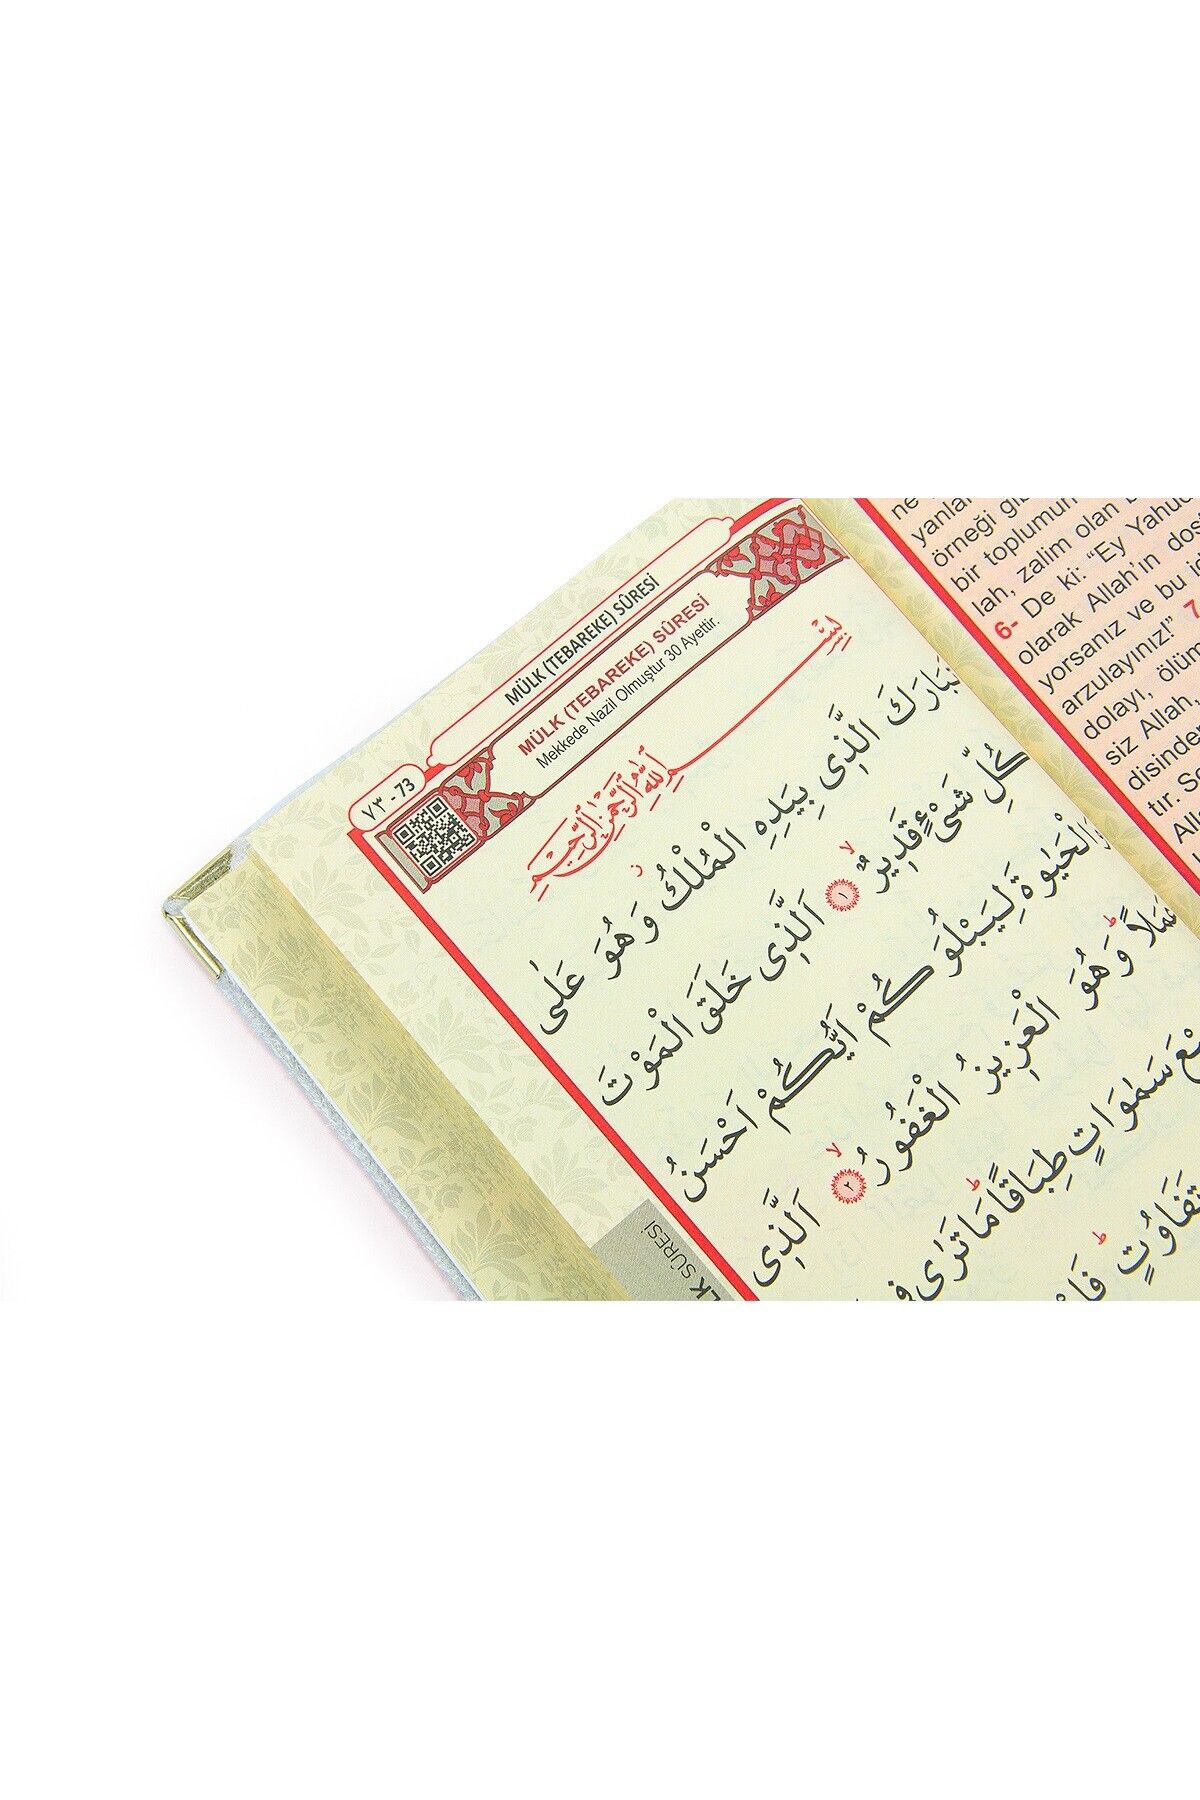 ٧٣ - 73
MÜLK (TEBAREKE) SÛRESİ
MÜLK (TEBAREKE) SÛRESİ
Mekkede Nazil Olmuştur 30 Ayettir.
بِسْمِ اللّٰهِ الرَّحْمٰنِ الرَّحِيمِ
تَبَارَكَ الَّذٖى بِيَدِهِ الْمُلْكُ وَهُوَ عَلٰى
كُلِّ شَىْءٍ قَدٖيرٌ ١ اَلَّذٖى خَلَقَ الْمَوْتَ
وَالْحَيٰوةَ لِيَبْلُوَكُمْ اَيُّكُمْ اَحْسَنُ
عَمَلًا وَهُوَ الْعَزٖيزُ الْغَفُورُ ٢ اَلَّذٖى
سَمٰوَاتٍ طِبَاقًا مَا تَرٰى
تَفَاوُتٍ
SÛRESİ
ne
örneği
bir toplumun
lah, zalim olan
6- De ki: “Ey Yahud
olarak Allah'ın dost
yorsanız ve bu id
arzulayınız!” 7
dolayı, ölüm
siz Allah,
disinden
tır.